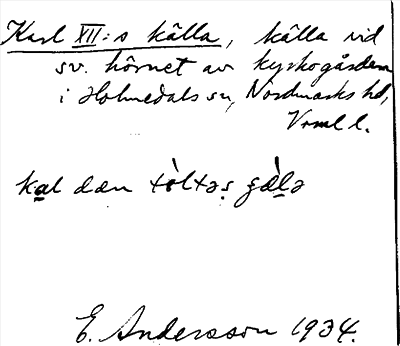 Karl XII:s källa, källa vid
sv. hörnet av kyrkogården
i Holmedals sn, Nordmarks hd,
Vrml l.
kal dæn tòltəs
E. Andersson 1934.